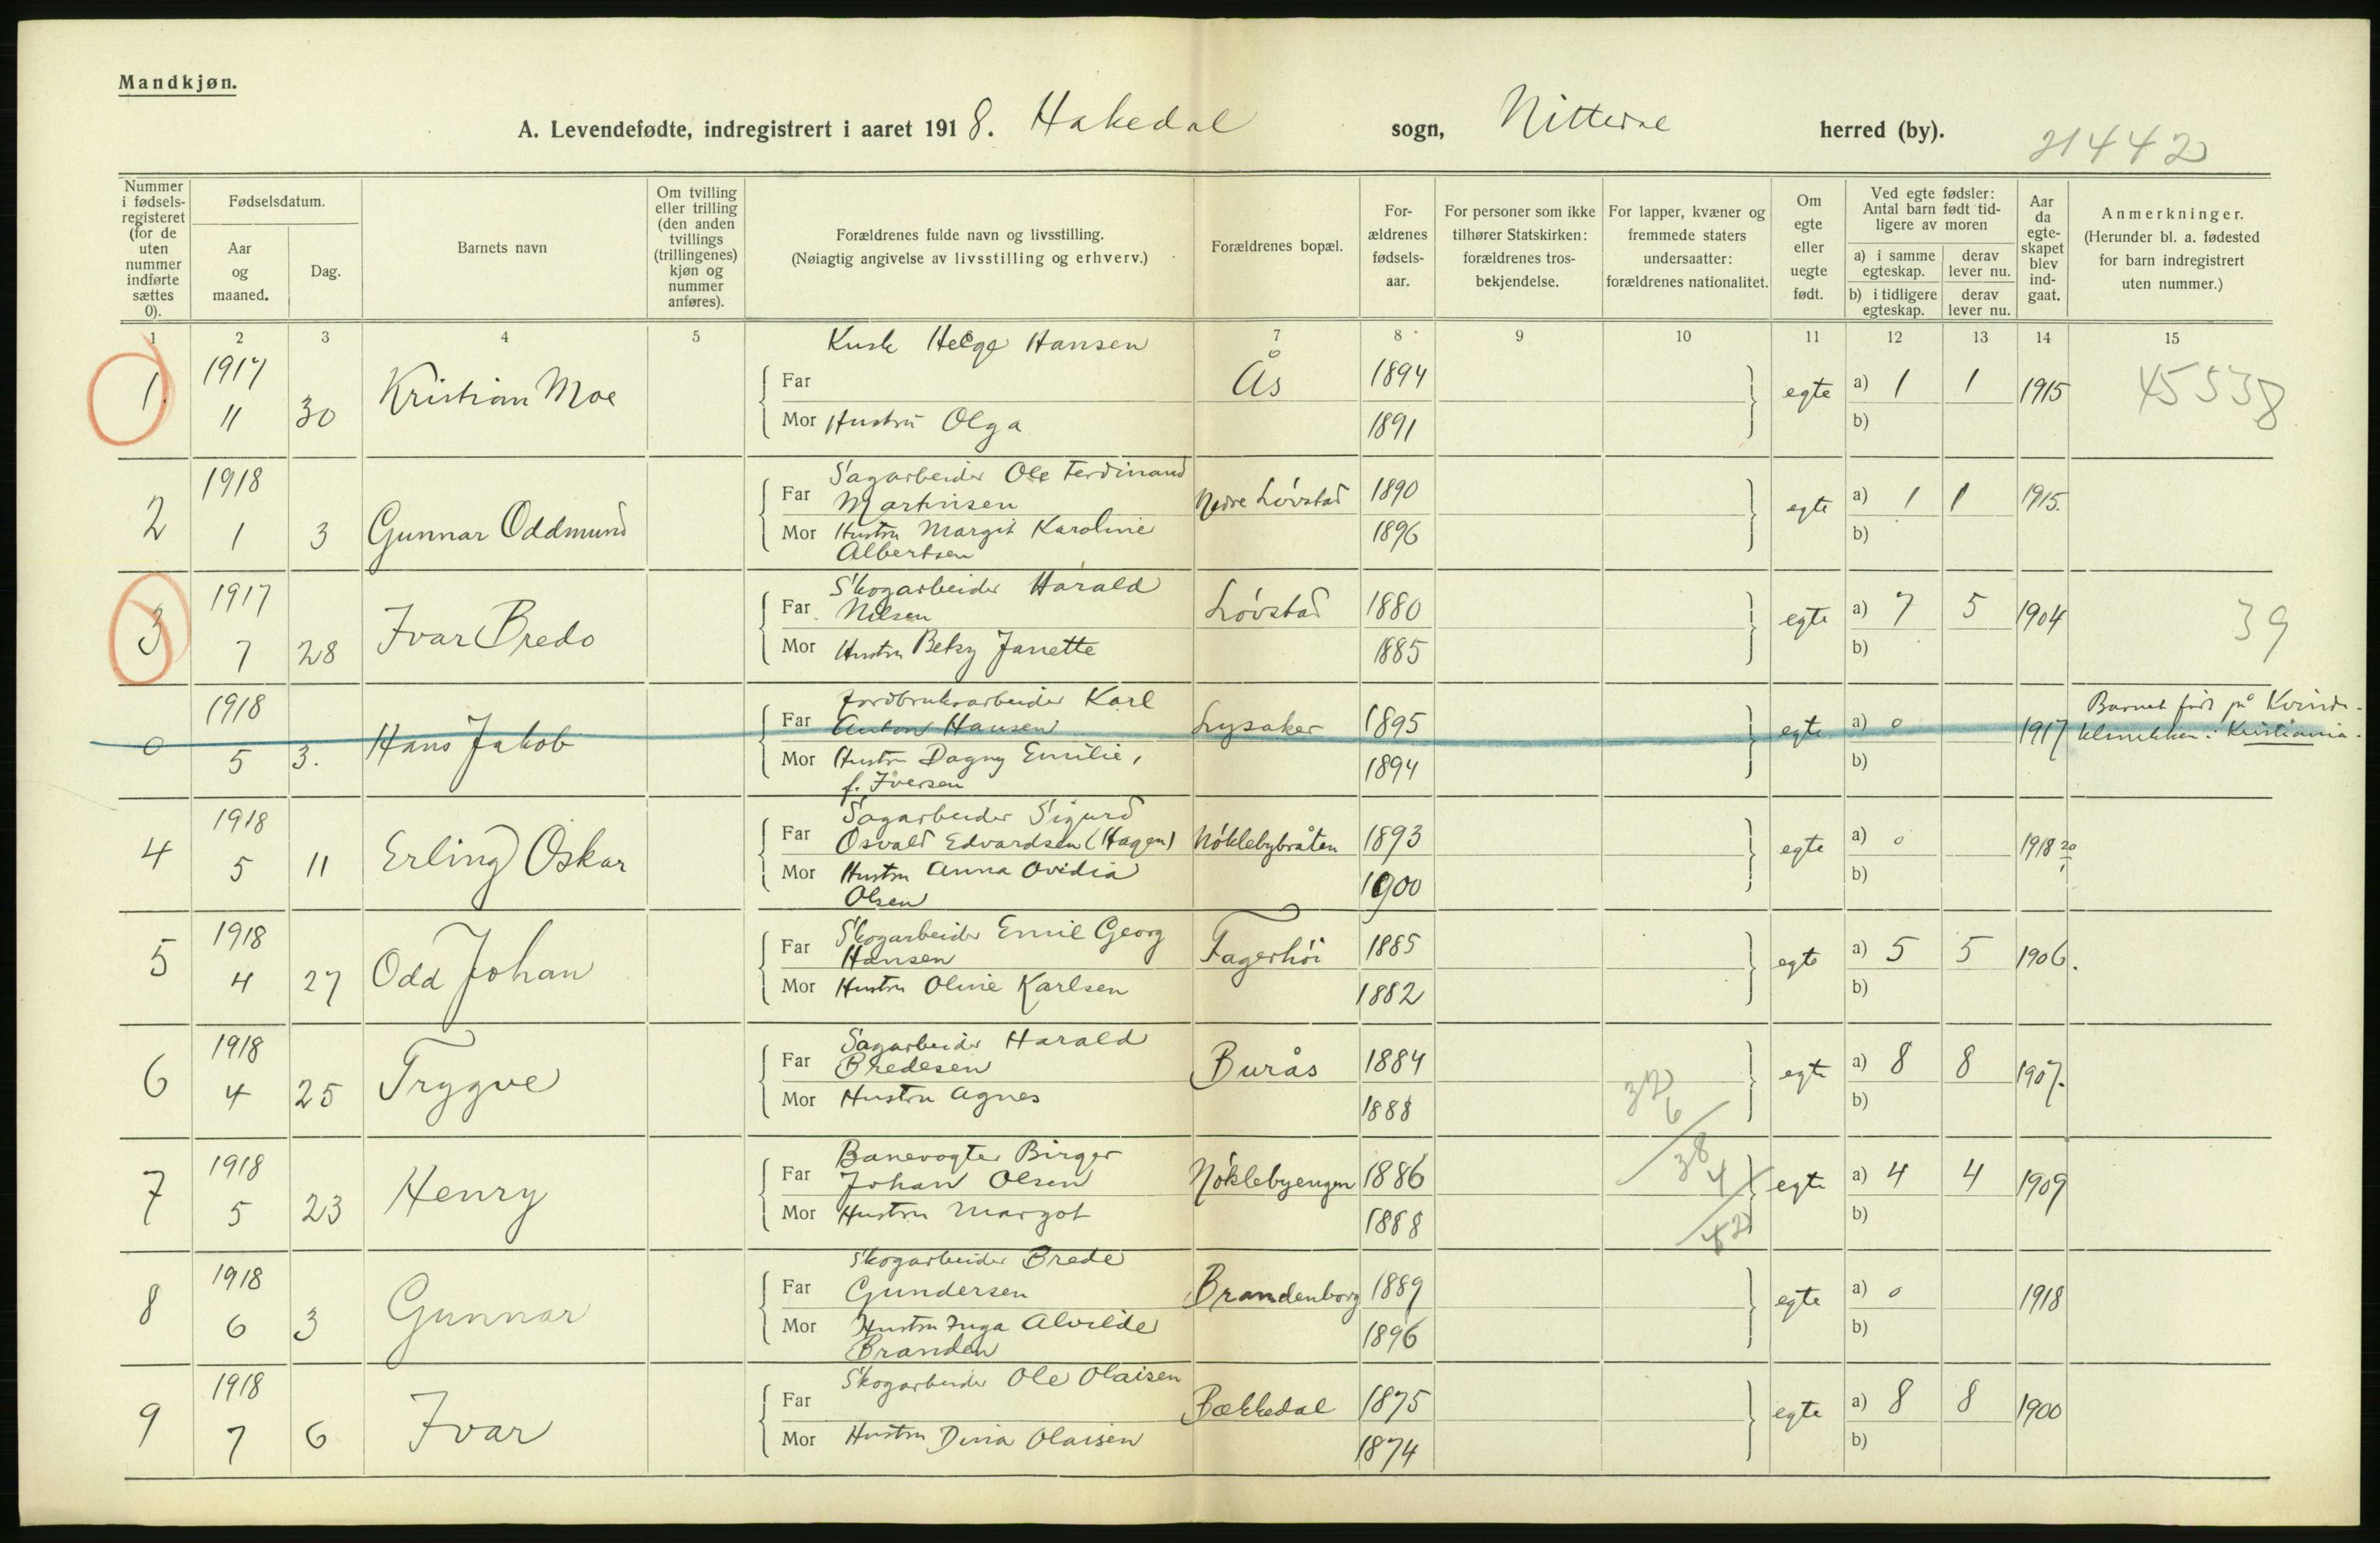 Mandkjøn.
A. Levendefødte, indregistrert i aaret 1918. Hakedal sogn, Nittedal herred (by).
21442
Nummer i fødsels-registeret (for de uten nummer indførte sættes 0).
Fødselsdatum.
Aar og maaned.
Dag.
Barnets navn
Om tvilling eller trilling (den anden tvillings (trillingenes) kjøn og nummer anføres).
Forældrenes fulde navn og livsstilling.
(Nøiagtig angivelse av livsstilling og erhverv.)
Forældrenes bopæl.
For-ældrenes fødsels-aar.
For personer som ikke tilhører Statskirken: forældrenes tros-bekjendelse.
For lapper, kvæner og fremmede staters undersaatter: forældrenes nationalitet.
Om egte eller uegte født.
Ved egte fødsler: Antal barn født tid-ligere av moren
a) i samme egteskap. derav lever nu.
b) i tidligere egteskap. derav lever nu.
Aar da egte-skapet blev ind-gaat.
Anmerkninger.
(Herunder bl. a. fødested for barn indregistrert uten nummer.)
1 2 3 4 5 7 8 9 10 11 12 13 14 15
1. 1917 11 30 Kristian Moe
Kusk Helge Hansen
Far
Mor Hustru Olga
Ås 1894 1891 egte a) 1 1 b) 1915 45538
2 1918 1 3 Gunnar Oddmund
Far Sagarbeider Ole Ferdinand
Martinsen
Mor Hustru Margit Karoline
Albertsen
Nedre Løvstad 1890 1896 egte a) 1 1 b) 1915.
3 1917 7 28 Ivar Bredo
Far Skogarbeider Harald
Nilsen
Mor Hustru Betsy Janette
Løvstad 1880 1885 egte a) 7 5 b) 1904 39
0 1918 5 3. Hans Jakob
Far Jordbruksarbeider Karl
Anton Hansen
Mor Hustru Dagny Emilie,
f. Iversen
Lysaker 1895 1894 egte a) 0 b) 1917
Barnet født på Kvinde-
klinikken i Kristiania.
4 1918 5 11 Erling Oskar
Far Sagarbeider Sigurd
Osvald Edvardsen (Hagen)
Mor Hustru Anna Ovidia
Olsen
Nøklebybråten 1893 1900 egte a) 0 b) 1918 20/1
5 1918 4 27 Odd Johan
Far Skogarbeider Emil Georg
Hansen
Mor Hustru Oline Karlsen
Fagerhøi 1885 1882 egte a) 5 5 b) 1906.
6 1918 4 25 Trygve
Far Sagarbeider Harald
Bredesen
Mor Hustru Agnes
Burås 1884 1888 egte a) 8 8 b) 1907.
32
6
38
4
42
7 1918 5 23 Henry
Far Banevogter Birger
Johan Olsen
Mor Hustru Margot
Nøklebyengen 1886 1888 egte a) 4 4 b) 1909
8 1918 6 3 Gunnar
Far Skogarbeider Brede
Gundersen
Mor Hustru Inga Alvilde
Branden
Brandenborg 1889 1896 egte a) 0 b) 1918
9 1918 7 6 Ivar
Far Skogarbeider Ole Olaisen
Mor Hustru Dina Olaisen
Bækkedal 1875 1874 egte a) 8 8 b) 1900